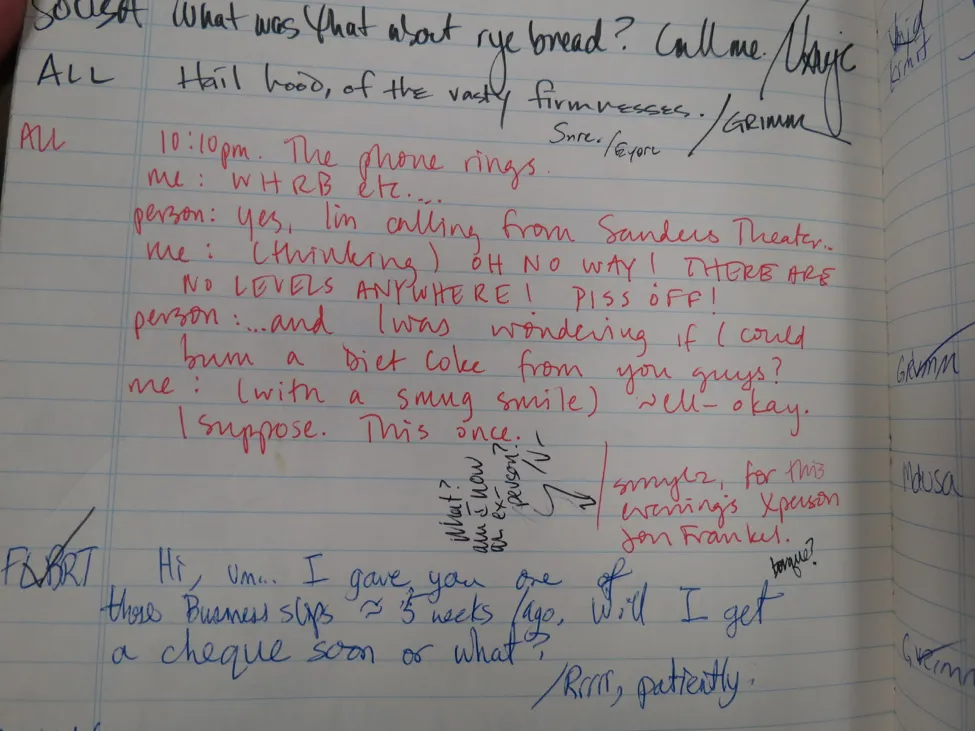 SOUSA What was that about rye bread? Call me.
ALL Hail hood, of the vasty firmnesses. /GRIMM
Snre./Eyore
ALL 10:10pm. The phone rings.
me: WHRB etc....
person: yes, I'm calling from Sanders Theater..
me: (thinking) OH NO WAY! THERE ARE
NO LEVELS ANYWHERE! PISS OFF!
person: ...and I was wondering if I could
bum a Diet Coke from you guys?
me: (with a smug smile) well- okay.
I suppose. This once.
what?
am I now
an ex-
person?
/smylz, for this
evening's Xperson
Jon Frankel.
FLBRT Hi, um... I gave you one of
those Business slips ≈ 5 weeks ago, Will I get
a cheque soon or what?
/Rrrrr, patiently.
GRIMM
Mdusa
Greimm